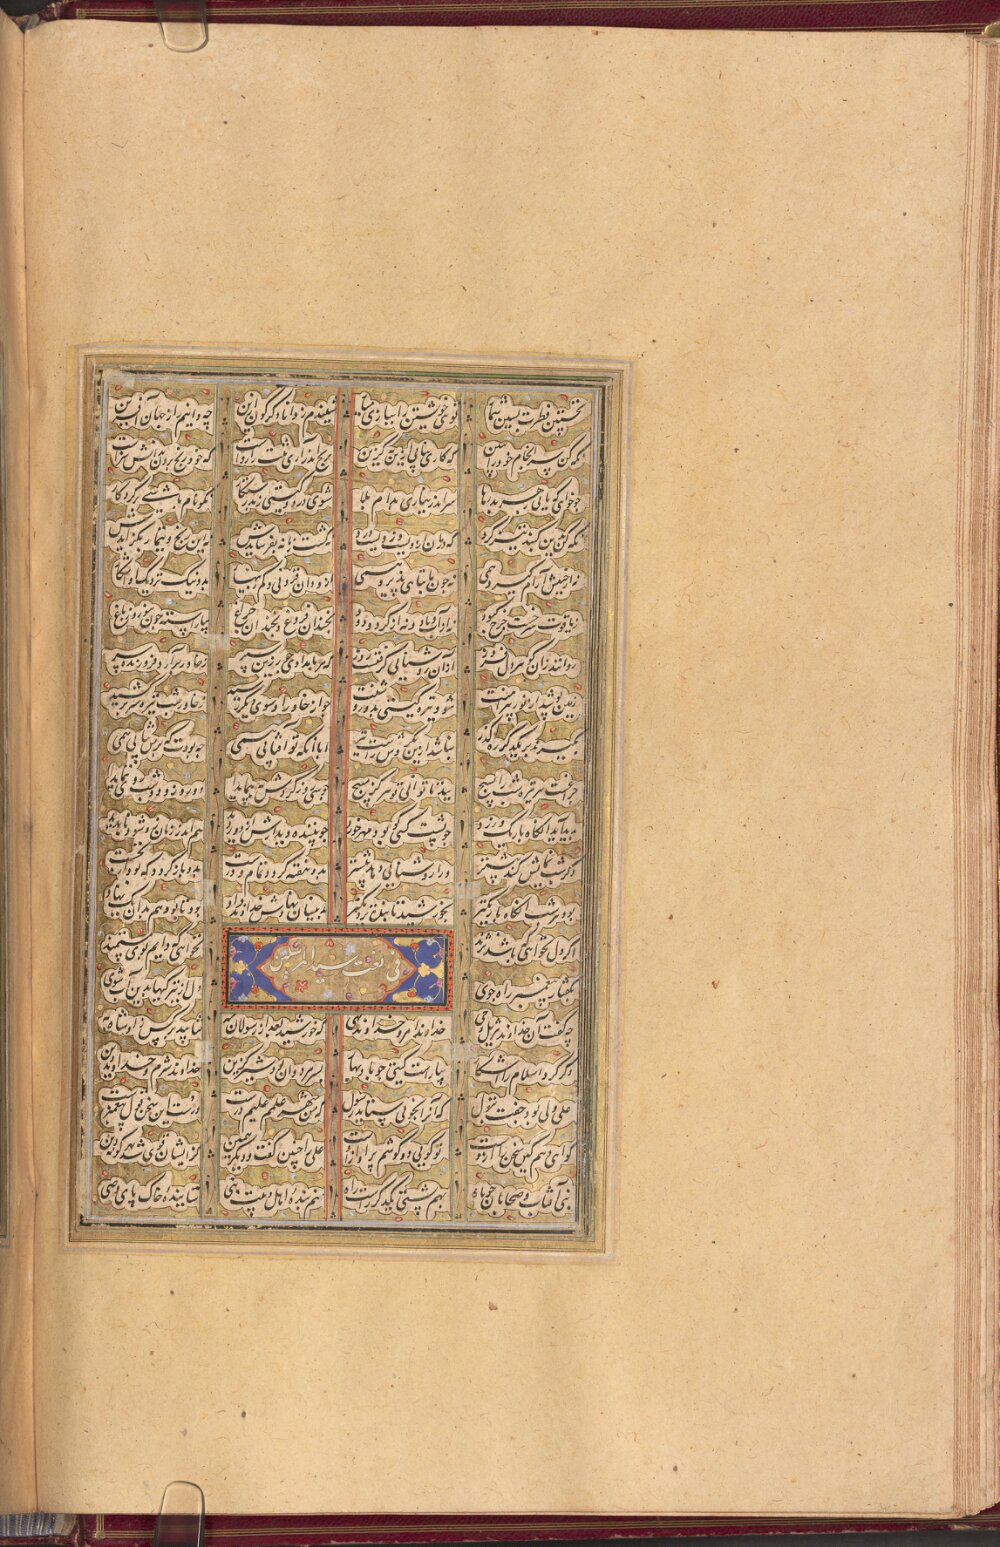 نخستین فطرت پسین شمار توئی خویشتن را ببازی مدار شنیدم ز دانا دگرگون ازین چه دانیم راز جهان آفرین
نگه کن سرانجام خود را ببین چو کاری بیابی ازین به گزین برنج اندر آری تنت را رواست که خود رنج بردن بدانش سزاست
چو خواهی که یابی ز هر بد رها سر اندر نیاری بدام بلا شوی در دو گیتی ز بد رستگار نکو نام باشی بر کردگار
نگه کن بدین گنبد تیز گرد که درمان ازویست و زویست درد نه گشت زمانه بفرسایدش نه این رنج و تیمار بگزایدش
نه از جنبش آرام گیرد همی نه چون ما تباهی پذیرد همی ازو دان فزونی و هم بد و نیک نزدیک او آشکار
ز یاقوت سرخست چرخ کبود نه از آب و باد و نه از گرد و دود بچندان فروغ و بچندان چراغ بیاراسته چون بنوروز باغ
روان اندران گوهر دلفروز کزان روشنایی گرفتست روز که هر بامدادی چو زرین سپر ز خاور برآرد فروزنده سر
زمین پوشد از نور پیراهنا شود تیره گیتی بدو روشنا چو از خاور او سوی دیگر رسد ز خاور شب تیره سر برکشد
نگیرند مر یکدگر را گذر نباشد ازین یک روش راست تر ایا آنکه تو آفتابی همی چه بودت که بر من نتابی همی
چراغست مر تیره شب را بسیچ ببد تا توانی تو هرگز مپیچ چو سی روز گردش بپیمایدا دو روز و دو شب روی ننمایدا
پدید آید آنگاه باریک و زرد چو پشت کسی کو بود مهر خورد چو بیننده دیدارش از دور دید هم اندر زمان او شود ناپدید
دگر شب نمایش کند بیشتر ورا روشنایی دهد بیشتر بدو هفته گردد تمام و درست بدو باز گردد که بود از نخست
بود هر شب آنگاه باریکتر بخورشید تابنده نزدیکتر بدینسان نهادش خداوند داد بود تا بود هم بدین یک نهاد
فی نعت سید المرسلین
اگر دل نخواهی که باشد نژند نخواهی که دایم بوی مستمند
بگفتار پیغمبرت راه جوی دل از تیرگیها بدین آب شوی
چه گفت آن خداوند تنزیل و وحی خداوند امر و خداوند نهی که خورشید بعد از رسولان مه نتابید بر کس
کرد اسلام را آشکار بیاراست گیتی چو باغ بهار پس هر دوان بود گزین خداوند شرم و خداوند دین
علی ولی بود جفت بتول که او را بخوبی ستاید رسول که من شهر علمم علیم درست درست این سخن قول پیغمبرست
گواهی دهم کین سخن راز اوست تو گویی دو گوشم پر آواز اوست علی را چنین گفت و دیگر همین کزایشان قوی شد بهر گونه دین
نبی آفتاب و صحابان چو ماه بهم نسبتی یکدگر راست راه منم بنده اهل بیت نبی ستاینده خاک پای وصی